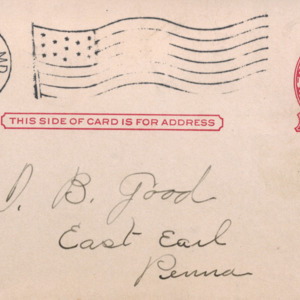 MD
THIS SIDE OF CARD IS FOR ADDRESS
D. B. Good
East Earl
Penna